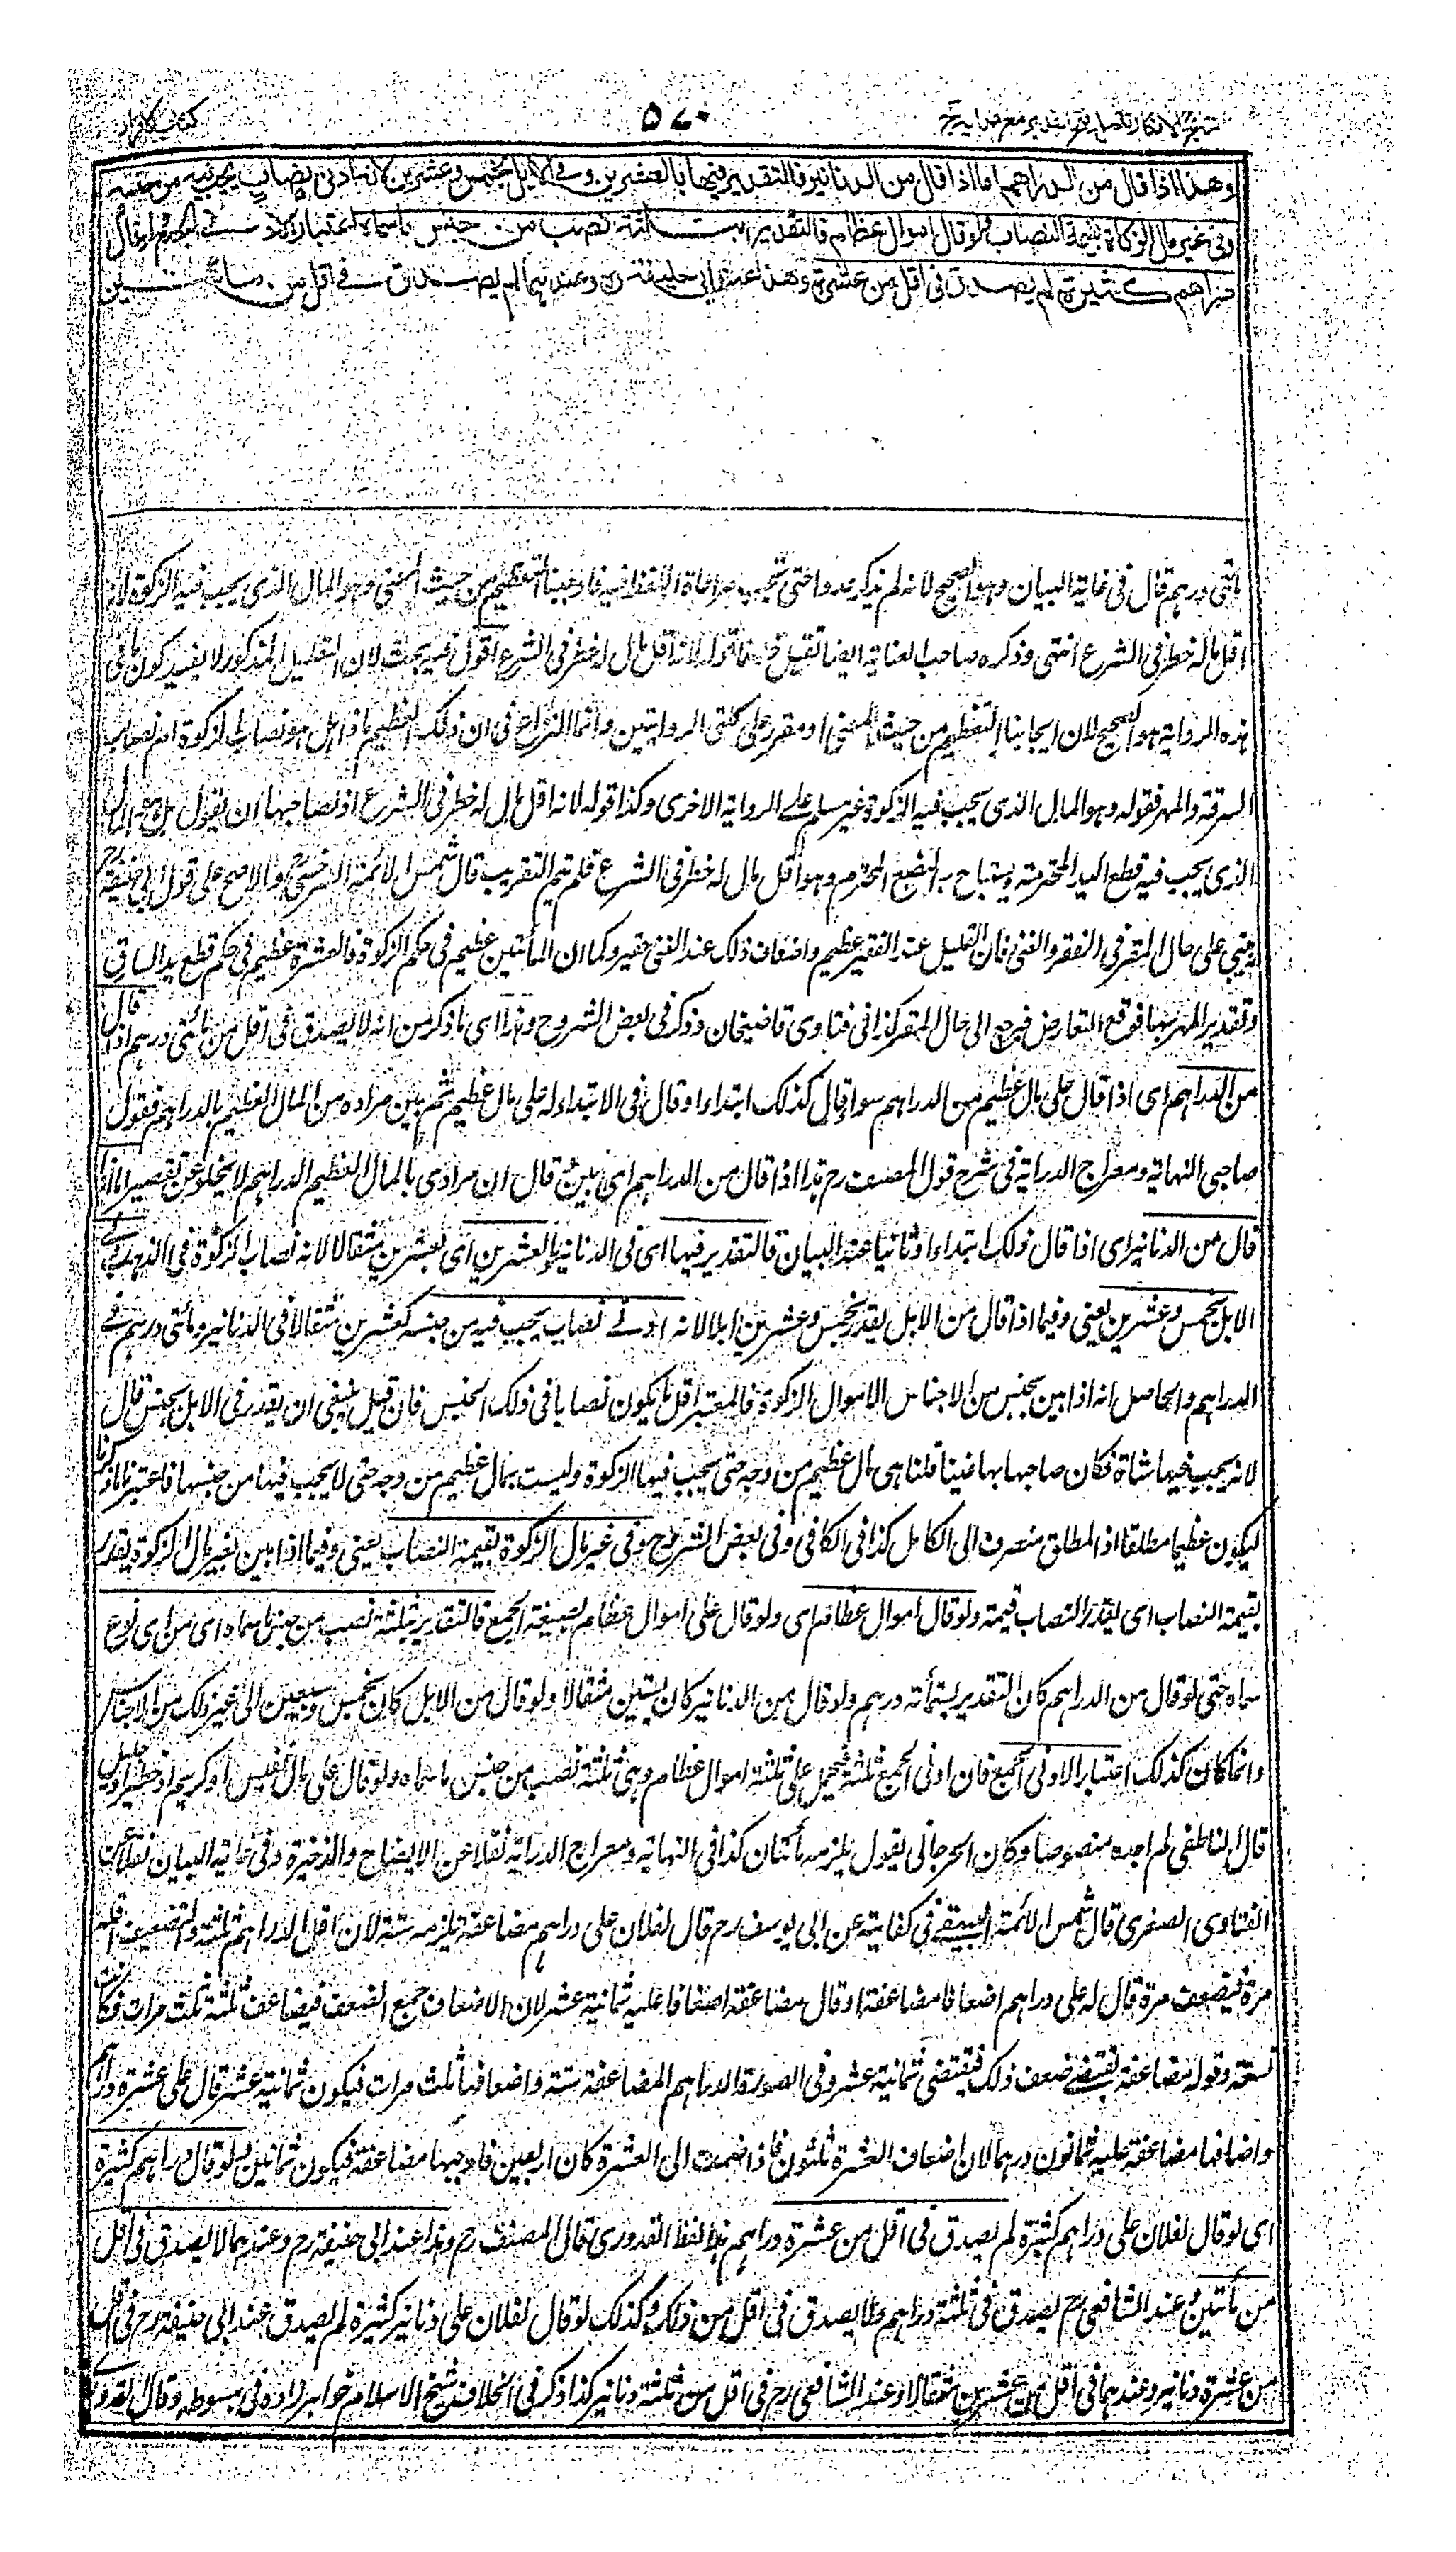 كتاب الاقرار ٥٧٠ نتائج الافكار تكملة فتح القدير مع هداية ج
وهذا اذا قال من الدراهم اما اذا قال من الدنانير فالتقدير فيها بالعشرين وفي الابل بخمس وعشرين لانه ادنى نصاب يجب فيه من جنسه
وفي غير مال الزكاة بقيمة النصاب ولو قال اموال عظام فالتقدير بثلثة نصب من جنس ما سماه اعتبارا لادنى الجمع ولو قال
دراهم كثيرة لم يصدق في اقل من عشرة وهذا عند ابي حنيفة رح وعندهما لم يصدق في اقل من مائتين
مأتي درهم قال في غاية البيان وهو الصحيح لانه لم يذكر عددا حتى تجب مراعاة اللفظ فيه فاوجبنا التعظيم من حيث المعنى وهو المال الذي يجب فيه الزكوة لانه
اقل مال له خطر في الشرع انتهى وذكره صاحب العناية ايضا بقيل لانه اقل مال له خطر في الشرع اقول فيه بحث لان التعليل المذكور لا يفيد كون ما في
هذه الرواية هو الصحيح لان ايجابنا التعظيم من حيث المعنى امر مقرر على كلتي الروايتين وانما النزاع في ان ذلك العظيم اذا هل هو نصاب الزكوة ام نصاب
السرقة والمهر فقوله وهو المال الذي يجب فيه الزكوة غير مسلم على الرواية الاخرى وكذا قوله لانه اقل مال له خطر في الشرع اذ لصاحبها ان يقول بل هو المال
الذي يجب فيه قطع اليد المحترمة ويستباح به البضع المحترم وهو اقل مال له خطر في الشرع فلم يتم التقريب قال شمس الائمة السرخسي رح والاصح على قول ابي حنيفة رح
انه يبني على حال المقر في الفقر والغنى فان القليل عند الفقير عظيم واضعاف ذلك عند الغني حقير وكما ان المأتين عظيم في حكم الزكوة فالعشرة عظيم في حكم قطع يد السارق
وتقدير المهر بها فوقع التعارض فيرجع الى حال المقر كذا في فتاوى قاضيخان وذكر في بعض الشروح وهذا اي ما ذكر من انه لا يصدق في اقل من مأتي درهم اذا قال
من الدراهم اي اذا قال علي مال عظيم من الدراهم سواء قال كذلك ابتداء او قال في الابتداء له علي مال عظيم ثم بين مراده من المال العظيم بالدراهم فقول
صاحبي النهاية ومعراج الدراية في شرح قول المصنف رح هذا اذا قال من الدراهم اي بين وقال ان مرادي بالمال العظيم الدراهم لا يخلو عن تقصير اما اذا
قال من الدنانير اي اذا قال ذلك ابتداء او ثانيا عند البيان فالتقدير فيها اي في الدنانير بالعشرين اي بعشرين مثقالا لانه نصاب الزكوة في الذهب وفي
الابل بخمس وعشرين يعني وفيما اذا قال من الابل يقدر بخمس وعشرين ابلا لانه ادنى نصاب يجب فيه من جنسه كعشرين مثقالا في الدنانير ومأتي درهم في
الدراهم والحاصل انه اذا بين بجنس من الاجناس الاموال الزكوة فالمعتبر اقل ما يكون نصابا في ذلك الجنس فان قيل ينبغي ان يقدر في الابل بخمس قال
لانه يجب فيها شاة فكان صاحبها بها غنيا قلنا هي مال عظيم من وجه حتى يجب فيها الزكوة وليست بمال عظيم من وجه حتى لا يجب فيها من جنسها فاعتبرنا ما ذكرنا
ليكون عظيما مطلقا اذ المطلق منصرف الى الكامل كذا في الكافي وفي بعض الشروح وفي غير مال الزكوة بقيمة النصاب يعني وفيما اذا بين بغير مال الزكوة يقدر
بقيمة النصاب اي يقدر النصاب قيمة ولو قال اموال عظام اي ولو قال علي اموال عظام بصيغة الجمع فالتقدير بثلثة نصب من جنس ما سماه اي من اي نوع
سماه حتى لو قال من الدراهم كان التقدير بستمأة درهم ولو قال من الدنانير كان بستين مثقالا ولو قال من الابل كان بخمس وسبعين الى غير ذلك من الاجناس
وانما كان كذلك اعتبارا لادنى الجمع فان ادنى الجمع ثلثة فيحمل على ثلثة اموال عظام وهي ثلثة نصب من جنس ما سماه ولو قال علي مال نفيس او كريم او خطير او جليل
قال الناطفي لم اجده منصوصا وكان الجرجاني يقول يلزمه مأتان كذا في النهاية ومعراج الدراية نقلا عن الايضاح والذخيرة وفي غاية البيان نقلا عن
الفتاوى الصغرى قال شمس الائمة البيهقي في كفايته عن ابي يوسف رح قال لفلان علي دراهم مضاعفة يلزمه ستة لان اقل الدراهم ثلثة والتضعيف اقله
مرة فيضعف مرة قال له علي دراهم اضعافا مضاعفة او قال مضاعفة اضعافا عليه ثمانية عشر لان الاضعاف جمع الضعف فيضاعف ثلثة ثلث مرات فكانت
تسعة وقوله مضاعفة يقتضي ضعف ذلك فيقتضي ثمانية عشر وفي الصورة الدراهم المضاعفة ستة واضعافها ثلث مرات فيكون ثمانية عشر قال علي عشرة دراهم
واضعافها مضاعفة عليه ثمانون درهما لان اضعاف العشرة ثلثون فاذا ضمت الى العشرة كان اربعين فاوجبها مضاعفة فيكون ثمانين ولو قال دراهم كثيرة
اي لو قال لفلان علي دراهم كثيرة لم يصدق في اقل من عشرة دراهم هذا لفظ القدوري قال المصنف رح وهذا عند ابي حنيفة رح وعندهما لا يصدق في اقل
من مأتين وعند الشافعي رح يصدق في ثلثة دراهم ولا يصدق في اقل من ذلك وكذلك لو قال لفلان علي دنانير كثيرة لم يصدق عند ابي حنيفة رح في اقل
من عشرة دنانير وعندهما في اقل من عشرين مثقالا وعند الشافعي رح في اقل من ثلثة دنانير كذا ذكر في الخلاف شيخ الاسلام خواهر زاده في مبسوطه وقال القدوري